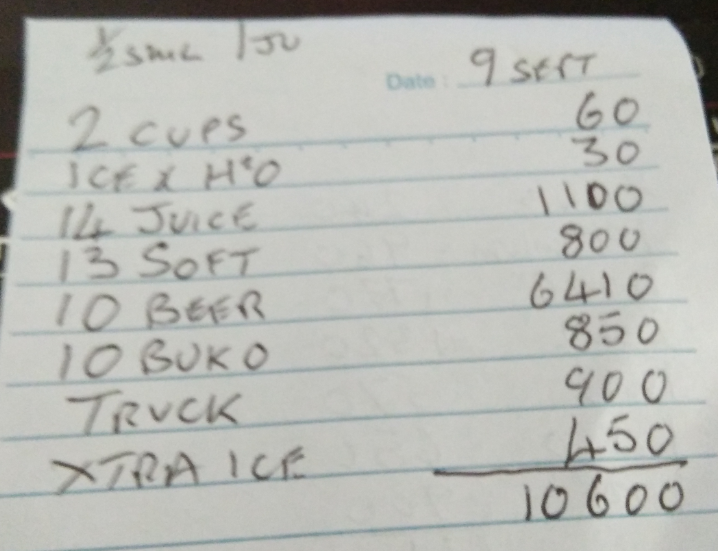 Date: 9 SEPT
2 CUPS 60
ICE X H2O 30
14 JUICE 1100
13 SOFT 800
10 BEER 6410
10 BUKO 850
TRUCK 900
XTRA ICE 450
10600